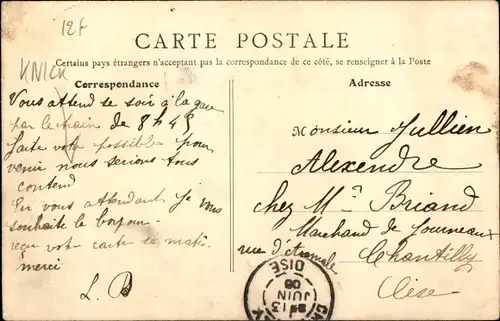 12f
KNICK
CARTE POSTALE
Certains pays étrangers n'acceptant pas la correspondance de ce côté, se renseigner à la Poste
Correspondance
Vous attend se soir à la gare
par le train de 8h48
faite votre possible pour
venir nous serions tous
contend
En vous attendant je vous
souhaite le bonjour
reçu votre carte se matin
merci
L. B
Adresse
Monsieur Jullien
Alexendre
chez Mr Briand
Marchand de Journeaux
rue d'
Chantilly
Oise
OISE
13
JUIN
06